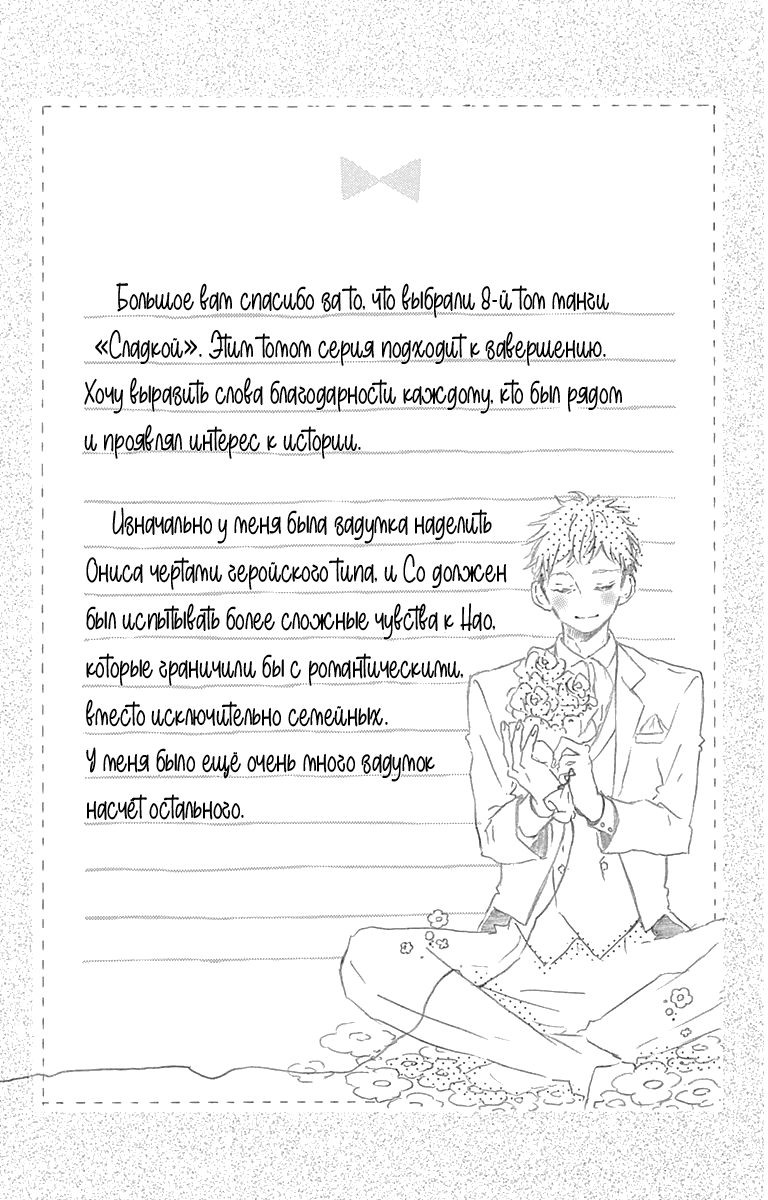 Большое вам спасибо за то, что выбрали 8-й том манги
«Сладкой». Этим томом серия подходит к завершению.
Хочу выразить слова благодарности каждому, кто был рядом
и проявлял интерес к истории.
Изначально у меня была задумка наделить
Ониса чертами геройского типа, и Со должен
был испытывать более сложные чувства к Нао,
которые граничили бы с романтическими,
вместо исключительно семейных.
У меня было ещё очень много задумок
насчёт остального.